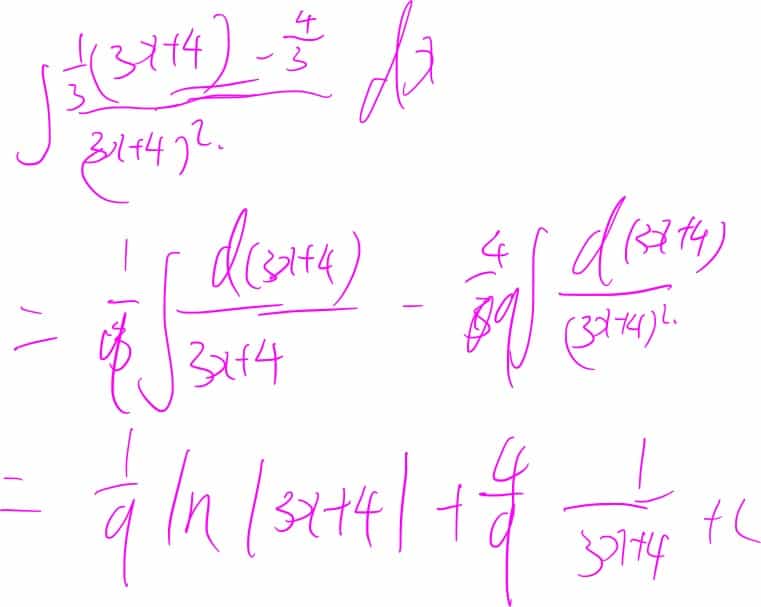 ∫ (1/3(3x+4) - 4/3)/(3x+4)². dx
= 1/9 ∫ d(3x+4)/(3x+4) - 4/9 ∫ d(3x+4)/(3x+4)².
= 1/9 ln|3x+4| + 4/9 1/(3x+4) + c